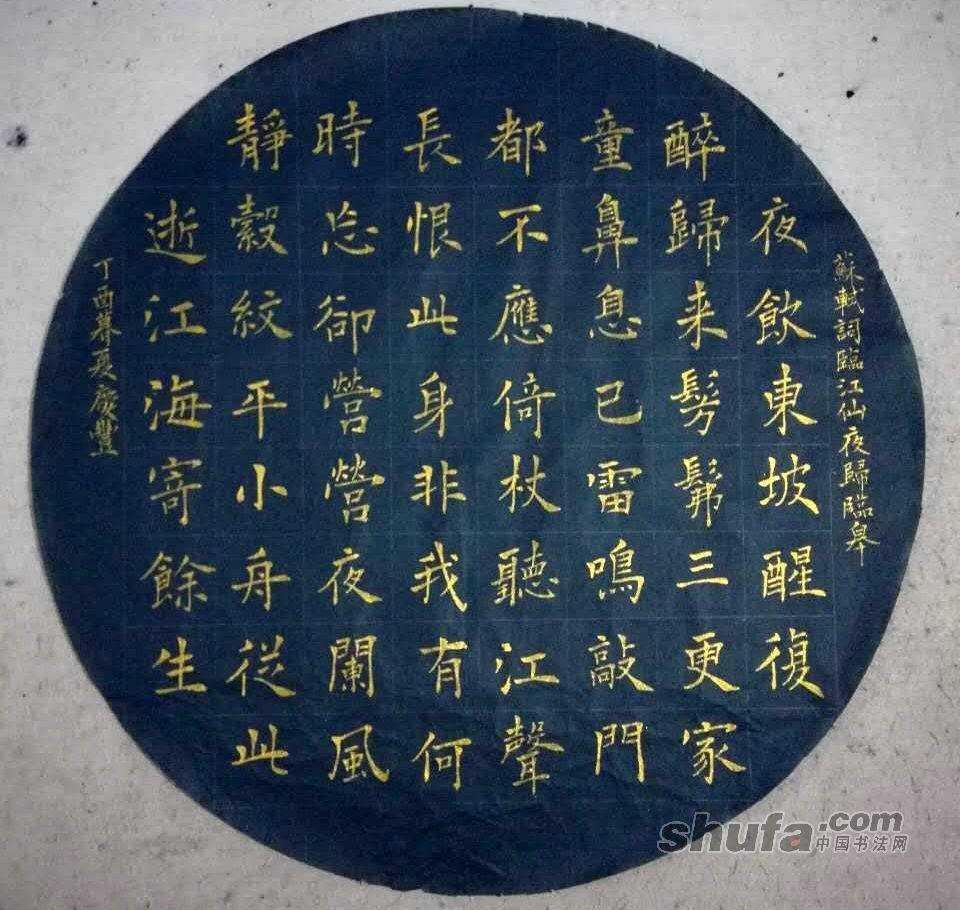 蘇軾詞臨江仙夜歸臨皋
夜飲東坡醒復
醉歸来髣髴三更家
童鼻息已雷鳴敲門
都不應倚杖聽江聲
長恨此身非我有何
時忘卻營營夜闌風
靜縠紋平小舟從此
逝江海寄餘生
丁酉暮夏慶豐
shufa.com
中国书法网